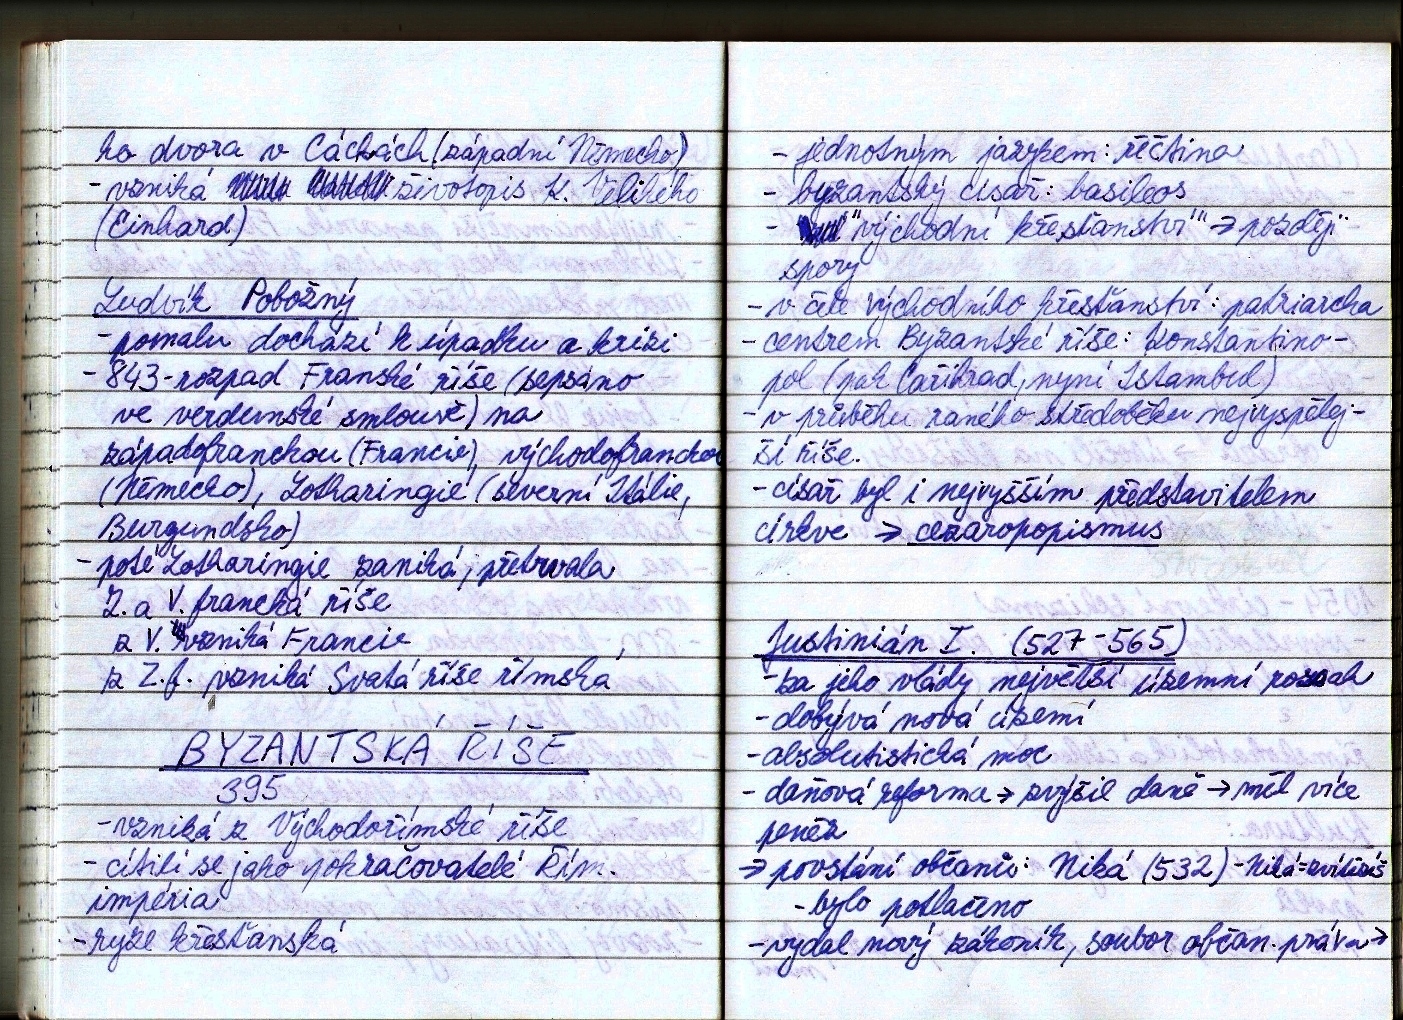 ho dvora v Cáchách (západní Německo)
- vzniká životopis K. Velikého
(Einhard)
Ludvík Pobožný
- pomalu dochází k úpadku a krizi
- 843 - rozpad Franské říše (sepsáno
ve verdunské smlouvě) na
západofranckou (Francie), východofranckou
(Německo), Lotharingié (severní Itálie,
Burgundsko)
- poté Lotharingie zaniká, přetrvala
Z. a V. francká říše
z V. vzniká Francie
z Z.f. vzniká Svatá říše římská
BYZANTSKÁ ŘÍŠE
395
- vzniká z Východořímské říše
- cítili se jako pokračovatelé Řím.
impéria
- ryze křesťanská
- jednotným jazykem: řečtina
- byzantský císař: basileos
- "východní křesťanství" → později
spory
- v čele východního křesťanství: patriarcha
- centrem Byzantské říše: Konstantino-
pol (pak Cařihrad, nyní Istambul)
- v průběhu raného středověku nejvyspělej-
ší říše.
- císař byl i nejvyšším představitelem
církve → cezaropopismus
Justinián I. (527-565)
- za jeho vlády největší územní rozsah
- dobývá nová území
- absolutistická moc
- daňová reforma → zvýšil daně → měl více
peněz
→ povstání občanů: Niká (532) - Niká=zvítězíš
- bylo potlačeno
- vydal nový zákoník, soubor občan. práva →